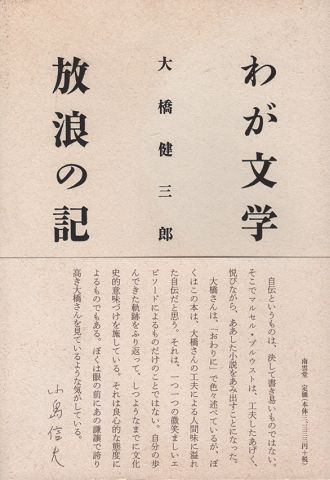 わが文学
放浪の記
大橋健三郎
自伝というものは、決して書き易いものではない。
そこでマルセル・プルウストは、工夫したあげく、
悦びながら、ああした小説をあみ出すことになった。
大橋さんは、「おわりに」で色々述べているが、ぼ
くはこの本は、大橋さんの工夫による人間味に溢れ
た自伝だと思う。それは、一つ一つの微笑ましいエ
ピソードによるものだけのことではない。自分の歩
んできた軌跡をふり返って、しつようなまでに文化
史的意味づけを施している。それは良心的な態度に
よるものでもある。ぼくは眼の前にあの謙譲で誇り
高き大橋さんを見ているような気がしている。
小島信夫
南雲堂 定価(本体三、三三三円+税)